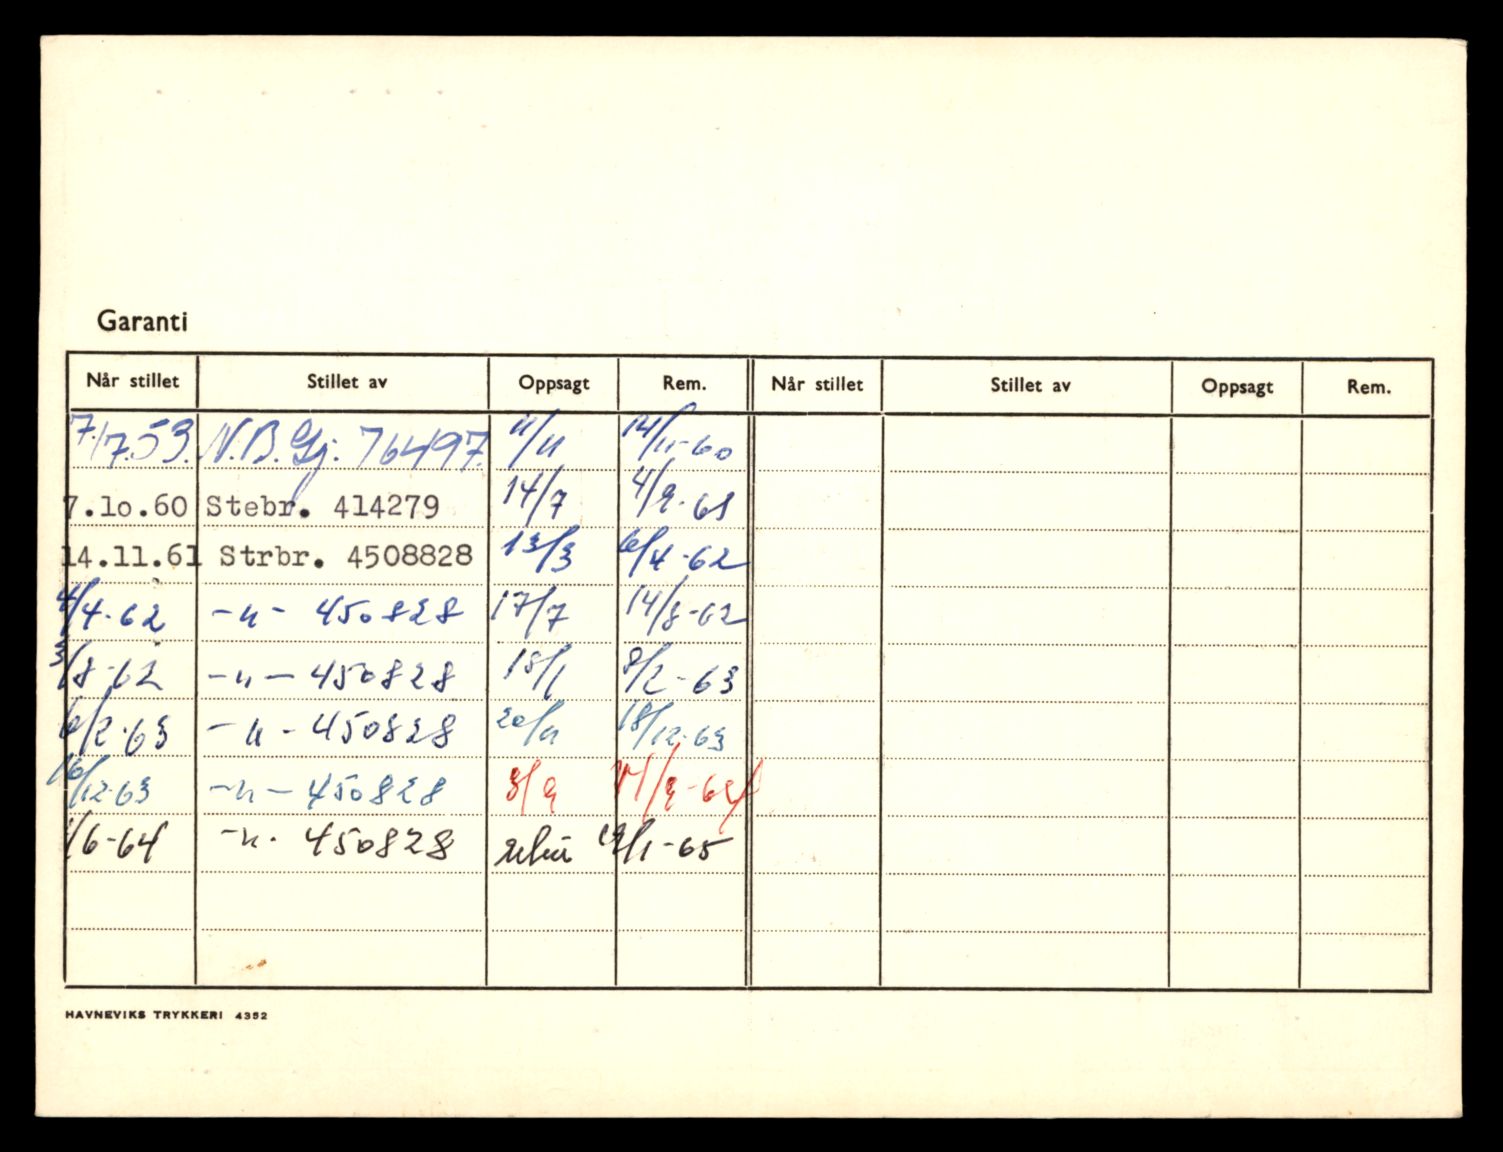 Garanti
Når stillet Stillet av Oppsagt Rem. Når stillet Stillet av Oppsagt Rem.
7/7.53. N.B.Gj. 76497. 11/11 14/11-60
7.10.60 Stebr. 414279 14/7 4/9-61
14.11.61 Strbr. 4508828 13/3 6/4-62
4/4-62 -"- 450828 17/7 14/8-62
3/8-62 -"- 450828 15/1 8/2-63
6/2-63 -"- 450828 20/11 18/12-63
16/12-63 -"- 450828 3/9
1/6-64 -"- 450828 /1-65
HAVNEVIKS TRYKKERI 4352